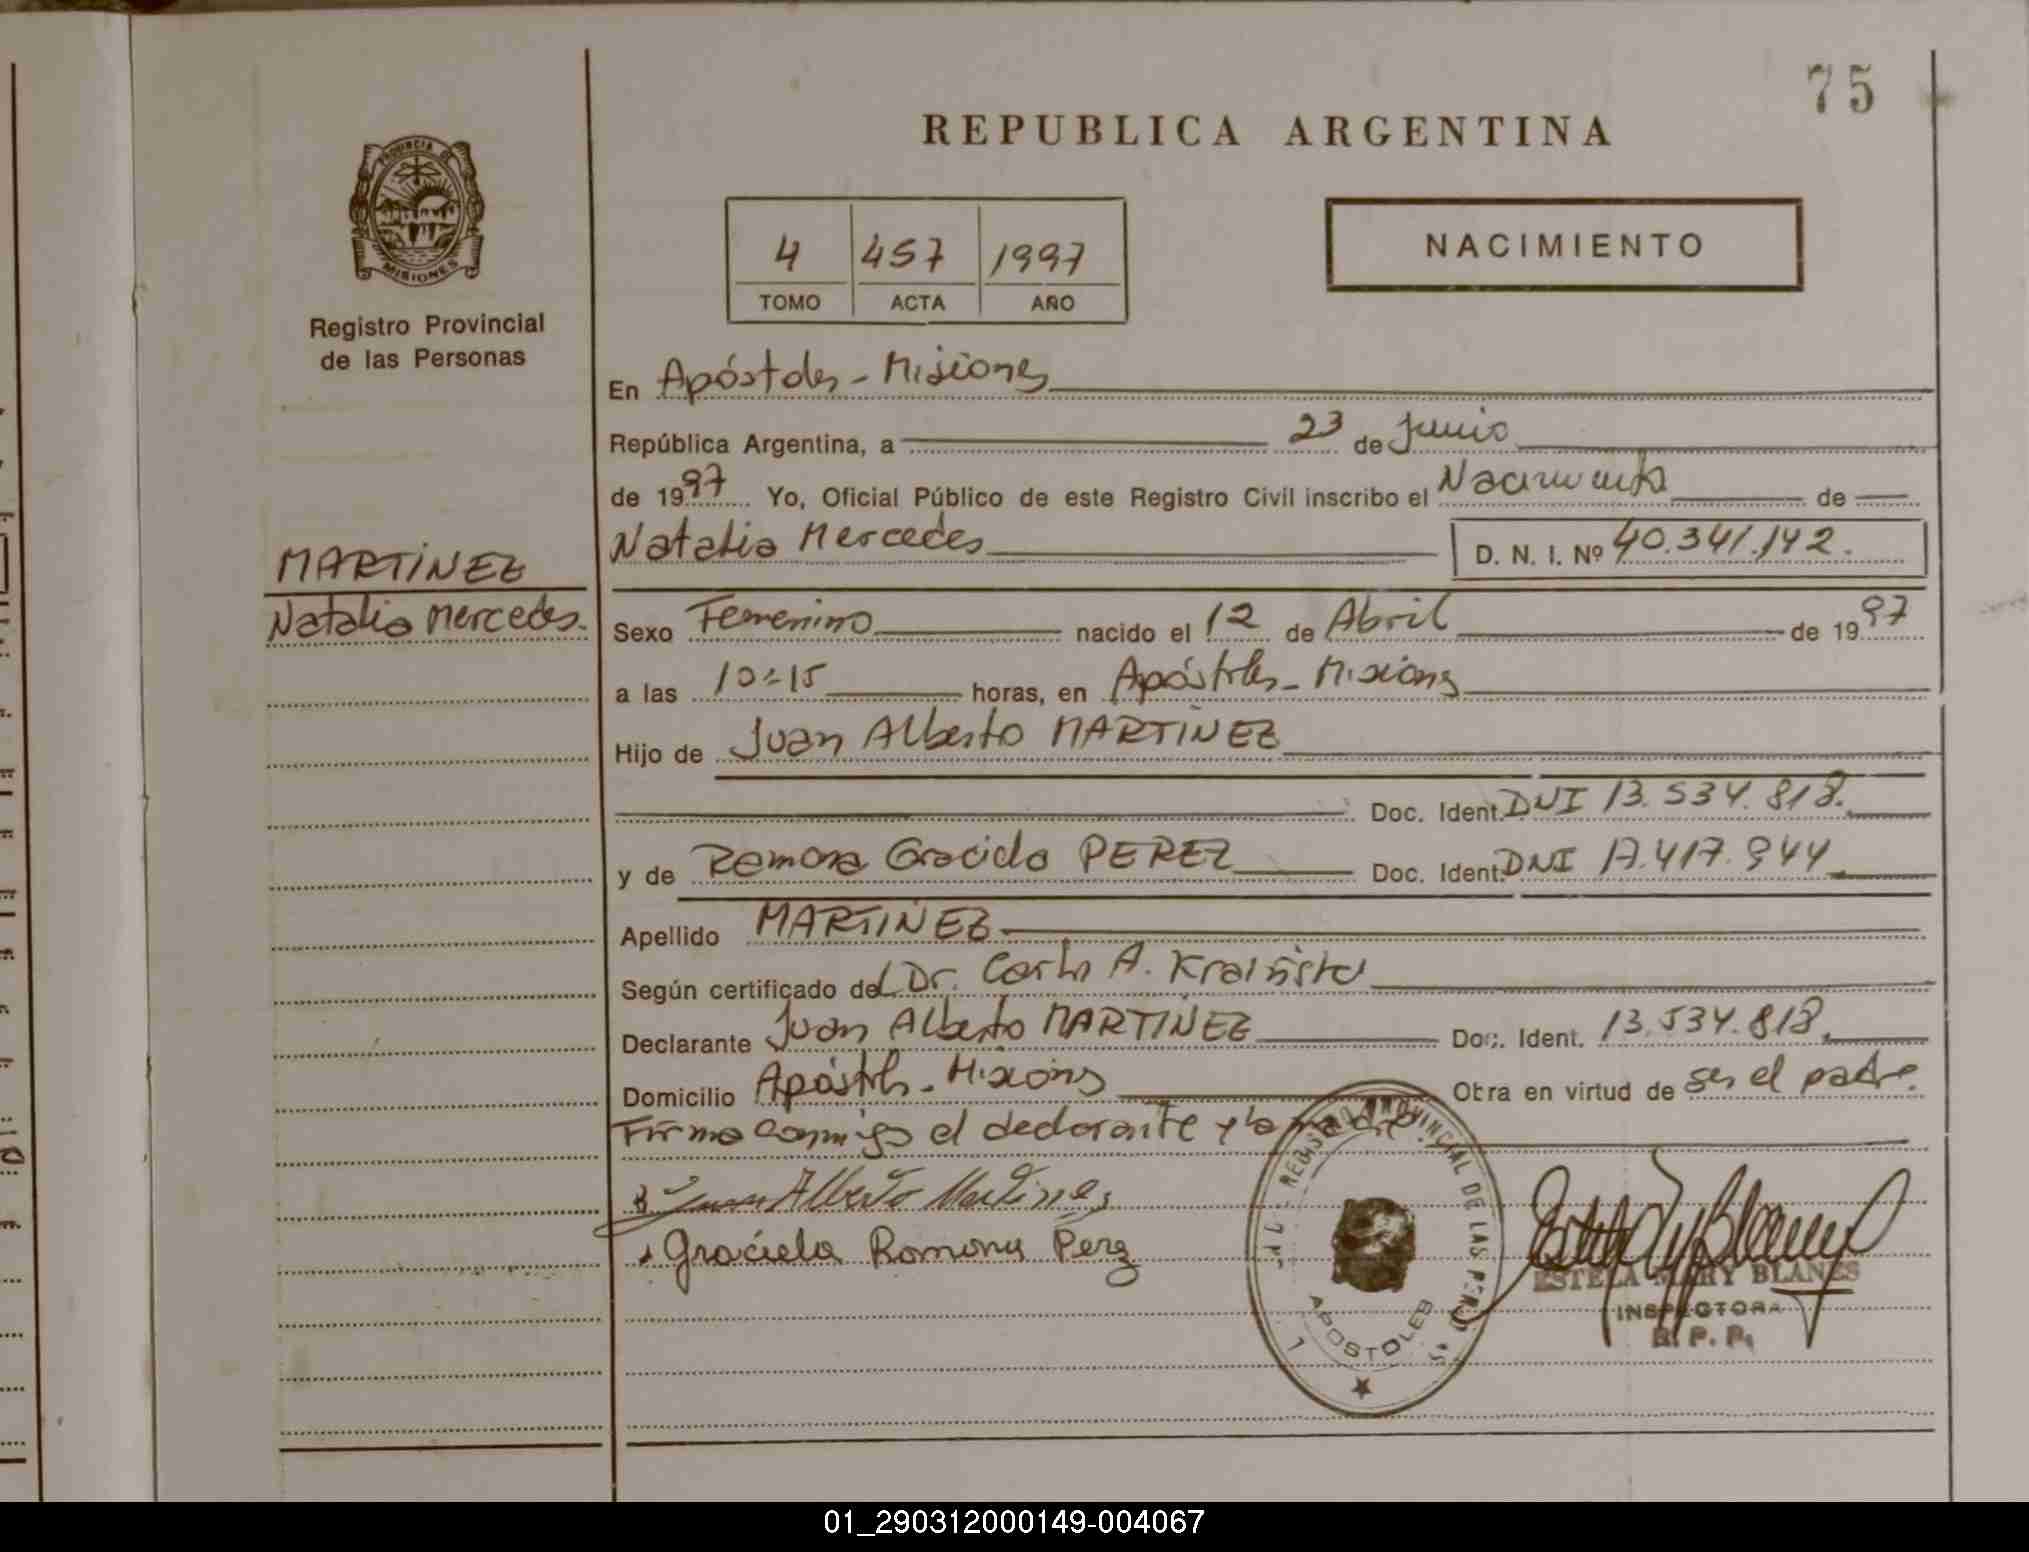 75
REPUBLICA ARGENTINA
PROVINCIA DE
MISIONES
Registro Provincial
de las Personas
4 457 1997
TOMO ACTA AÑO
NACIMIENTO
En Apóstoles - Misiones
República Argentina, a 23 de Junio
de 1997 Yo, Oficial Público de este Registro Civil inscribo el Nacimiento de
Natalia Mercedes D. N. I. Nº 40.341.142.
MARTINEZ
Natalia Mercedes.
Sexo Femenino nacido el 12 de Abril de 1997
a las 10:15 horas, en Apóstoles - Misiones
Hijo de Juan Alberto MARTINEZ
Doc. Ident. DNI 13.534.818.
y de Ramona Graciela PEREZ Doc. Ident. DNI 17.417.944
Apellido MARTINEZ
Según certificado del Dr. Carlos A.
Declarante Juan Alberto MARTINEZ Doc. Ident. 13.534.818.
Domicilio Apóstoles - Misiones Obra en virtud de ser el padre.
Firma conmigo el declarante y la madre.
Juan Alberto Martinez
Graciela Ramona Perez
REGISTRO PROVINCIAL DE LAS PERSONAS
APOSTOLES
1
ESTELA MARY BLANES
INSPECTORA
R. P. P.
01_290312000149-004067